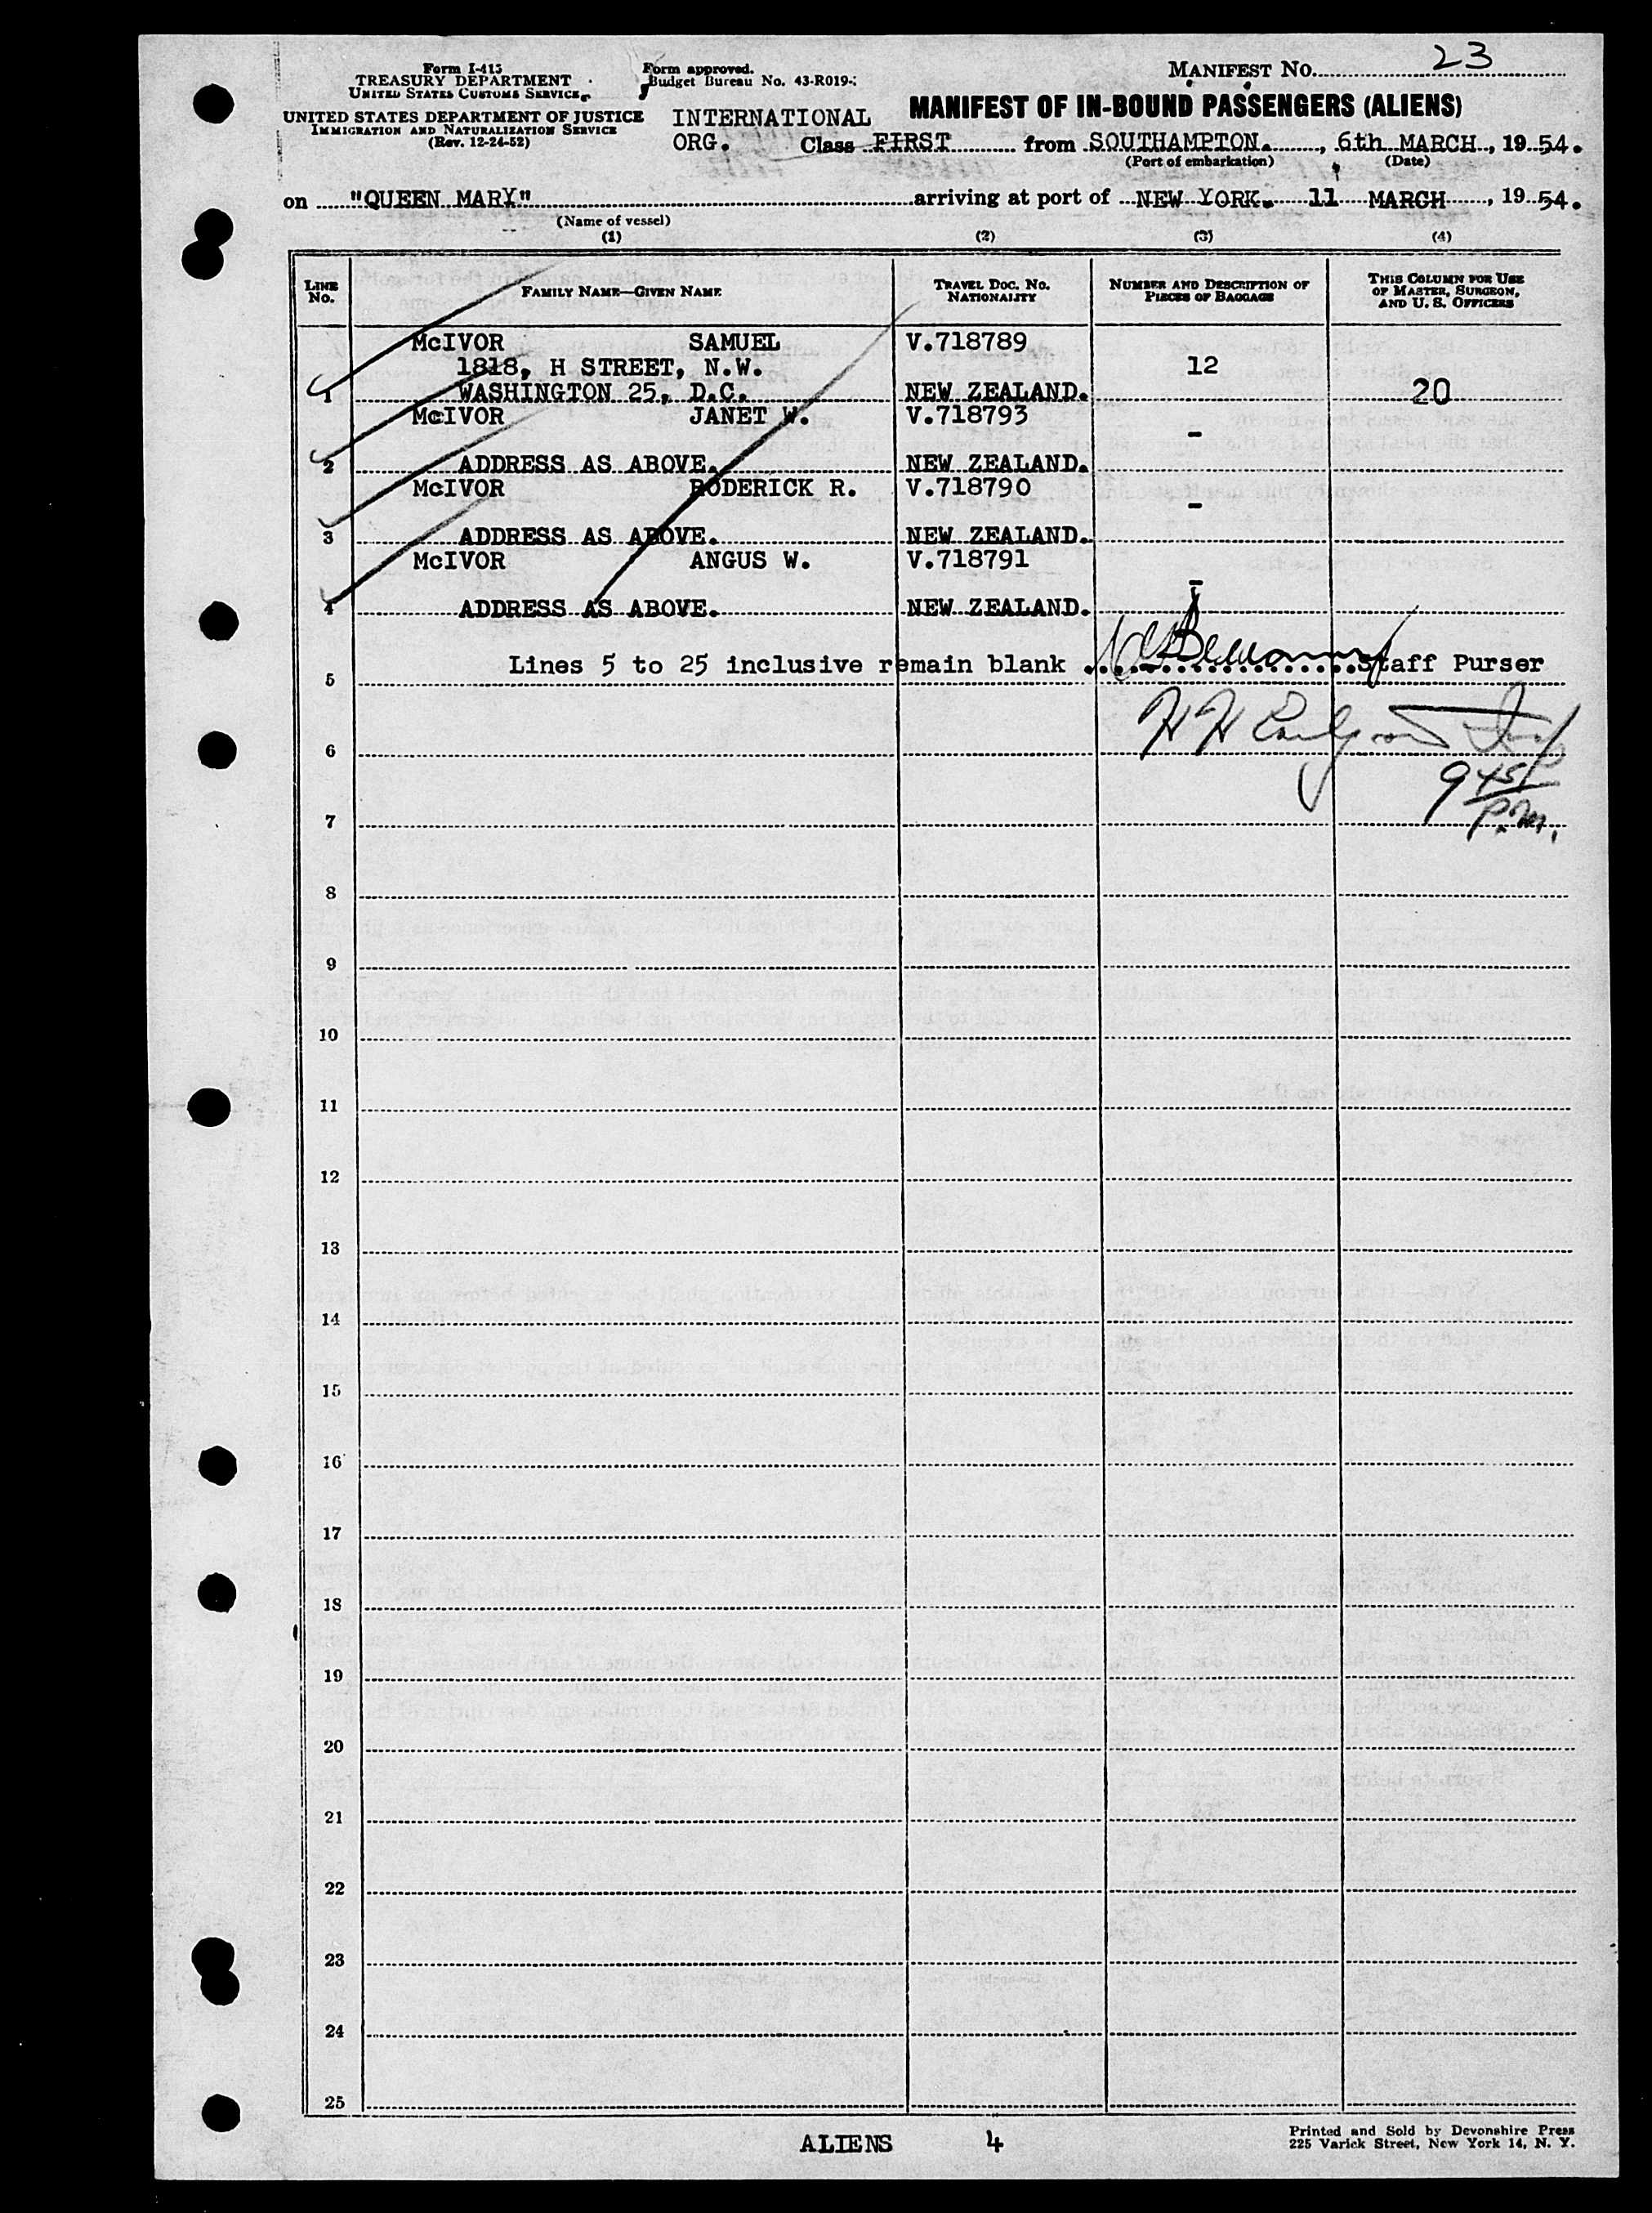 Form I-415
TREASURY DEPARTMENT
UNITED STATES CUSTOMS SERVICE
UNITED STATES DEPARTMENT OF JUSTICE
IMMIGRATION AND NATURALIZATION SERVICE
(Rev. 12-24-52)
Form approved.
Budget Bureau No. 43-R019-
INTERNATIONAL
ORG.
MANIFEST No. 23
MANIFEST OF IN-BOUND PASSENGERS (ALIENS)
Class FIRST from SOUTHAMPTON. , 6th MARCH , 19 54.
(Port of embarkation) (Date)
on "QUEEN MARY" arriving at port of NEW YORK. 11 MARCH , 19 54.
(Name of vessel)
(1) (2) (3) (4)
LINE No. FAMILY NAME—GIVEN NAME TRAVEL DOC. No. NATIONALITY NUMBER AND DESCRIPTION OF PIECES OF BAGGAGE THIS COLUMN FOR USE OF MASTER, SURGEON, AND U. S. OFFICERS
McIVOR SAMUEL V.718789
1818, H STREET, N.W. 12
1 WASHINGTON 25, D.C. NEW ZEALAND. 20
McIVOR JANET W. V.718793
-
2 ADDRESS AS ABOVE. NEW ZEALAND.
McIVOR RODERICK R. V.718790
-
3 ADDRESS AS ABOVE. NEW ZEALAND.
McIVOR ANGUS W. V.718791
-
4 ADDRESS AS ABOVE. NEW ZEALAND.
Lines 5 to 25 inclusive remain blank Staff Purser
5
6
9 45
P.M.
7
8
9
10
11
12
13
14
15
16
17
18
19
20
21
22
23
24
25
ALIENS 4
Printed and Sold by Devonshire Press
225 Varick Street, New York 14, N. Y.